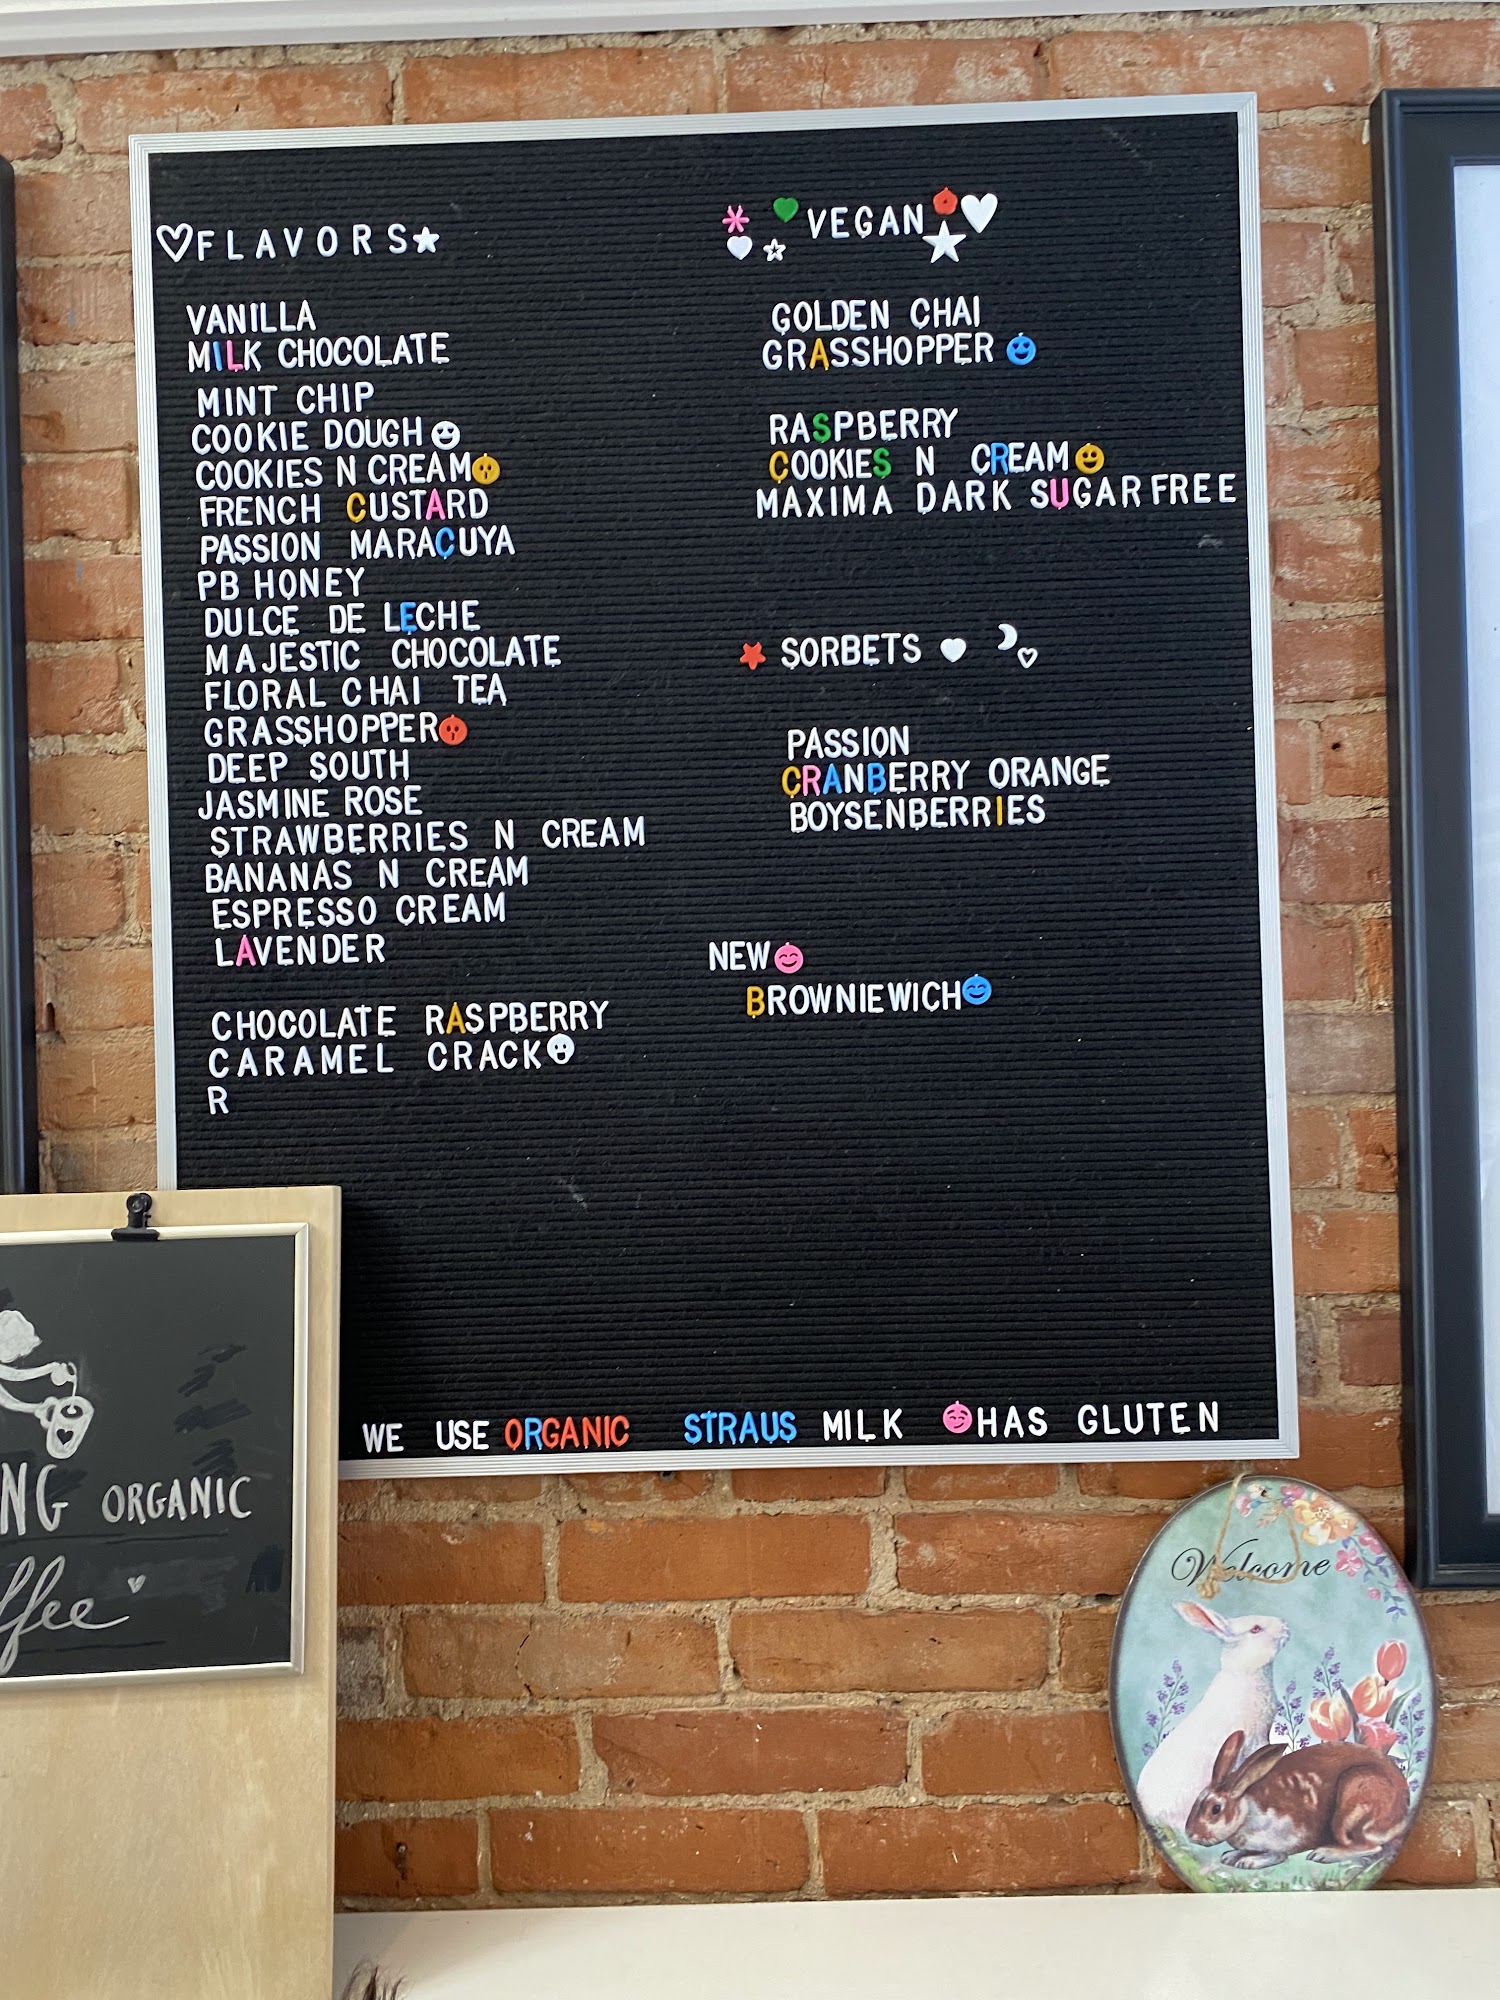 FLAVORS
VANILLA
MILK CHOCOLATE
MINT CHIP
COOKIE DOUGH
COOKIES N CREAM
FRENCH CUSTARD
PASSION MARACUYA
PB HONEY
DULCE DE LECHE
MAJESTIC CHOCOLATE
FLORAL CHAI TEA
GRASSHOPPER
DEEP SOUTH
JASMINE ROSE
STRAWBERRIES N CREAM
BANANAS N CREAM
ESPRESSO CREAM
LAVENDER
CHOCOLATE RASPBERRY
CARAMEL CRACK
R
VEGAN
GOLDEN CHAI
GRASSHOPPER
RASPBERRY
COOKIES N CREAM
MAXIMA DARK SUGAR FREE
SORBETS
PASSION
CRANBERRY ORANGE
BOYSENBERRIES
NEW
BROWNIEWICH
WE USE ORGANIC STRAUS MILK HAS GLUTEN
ORGANIC
Welcome